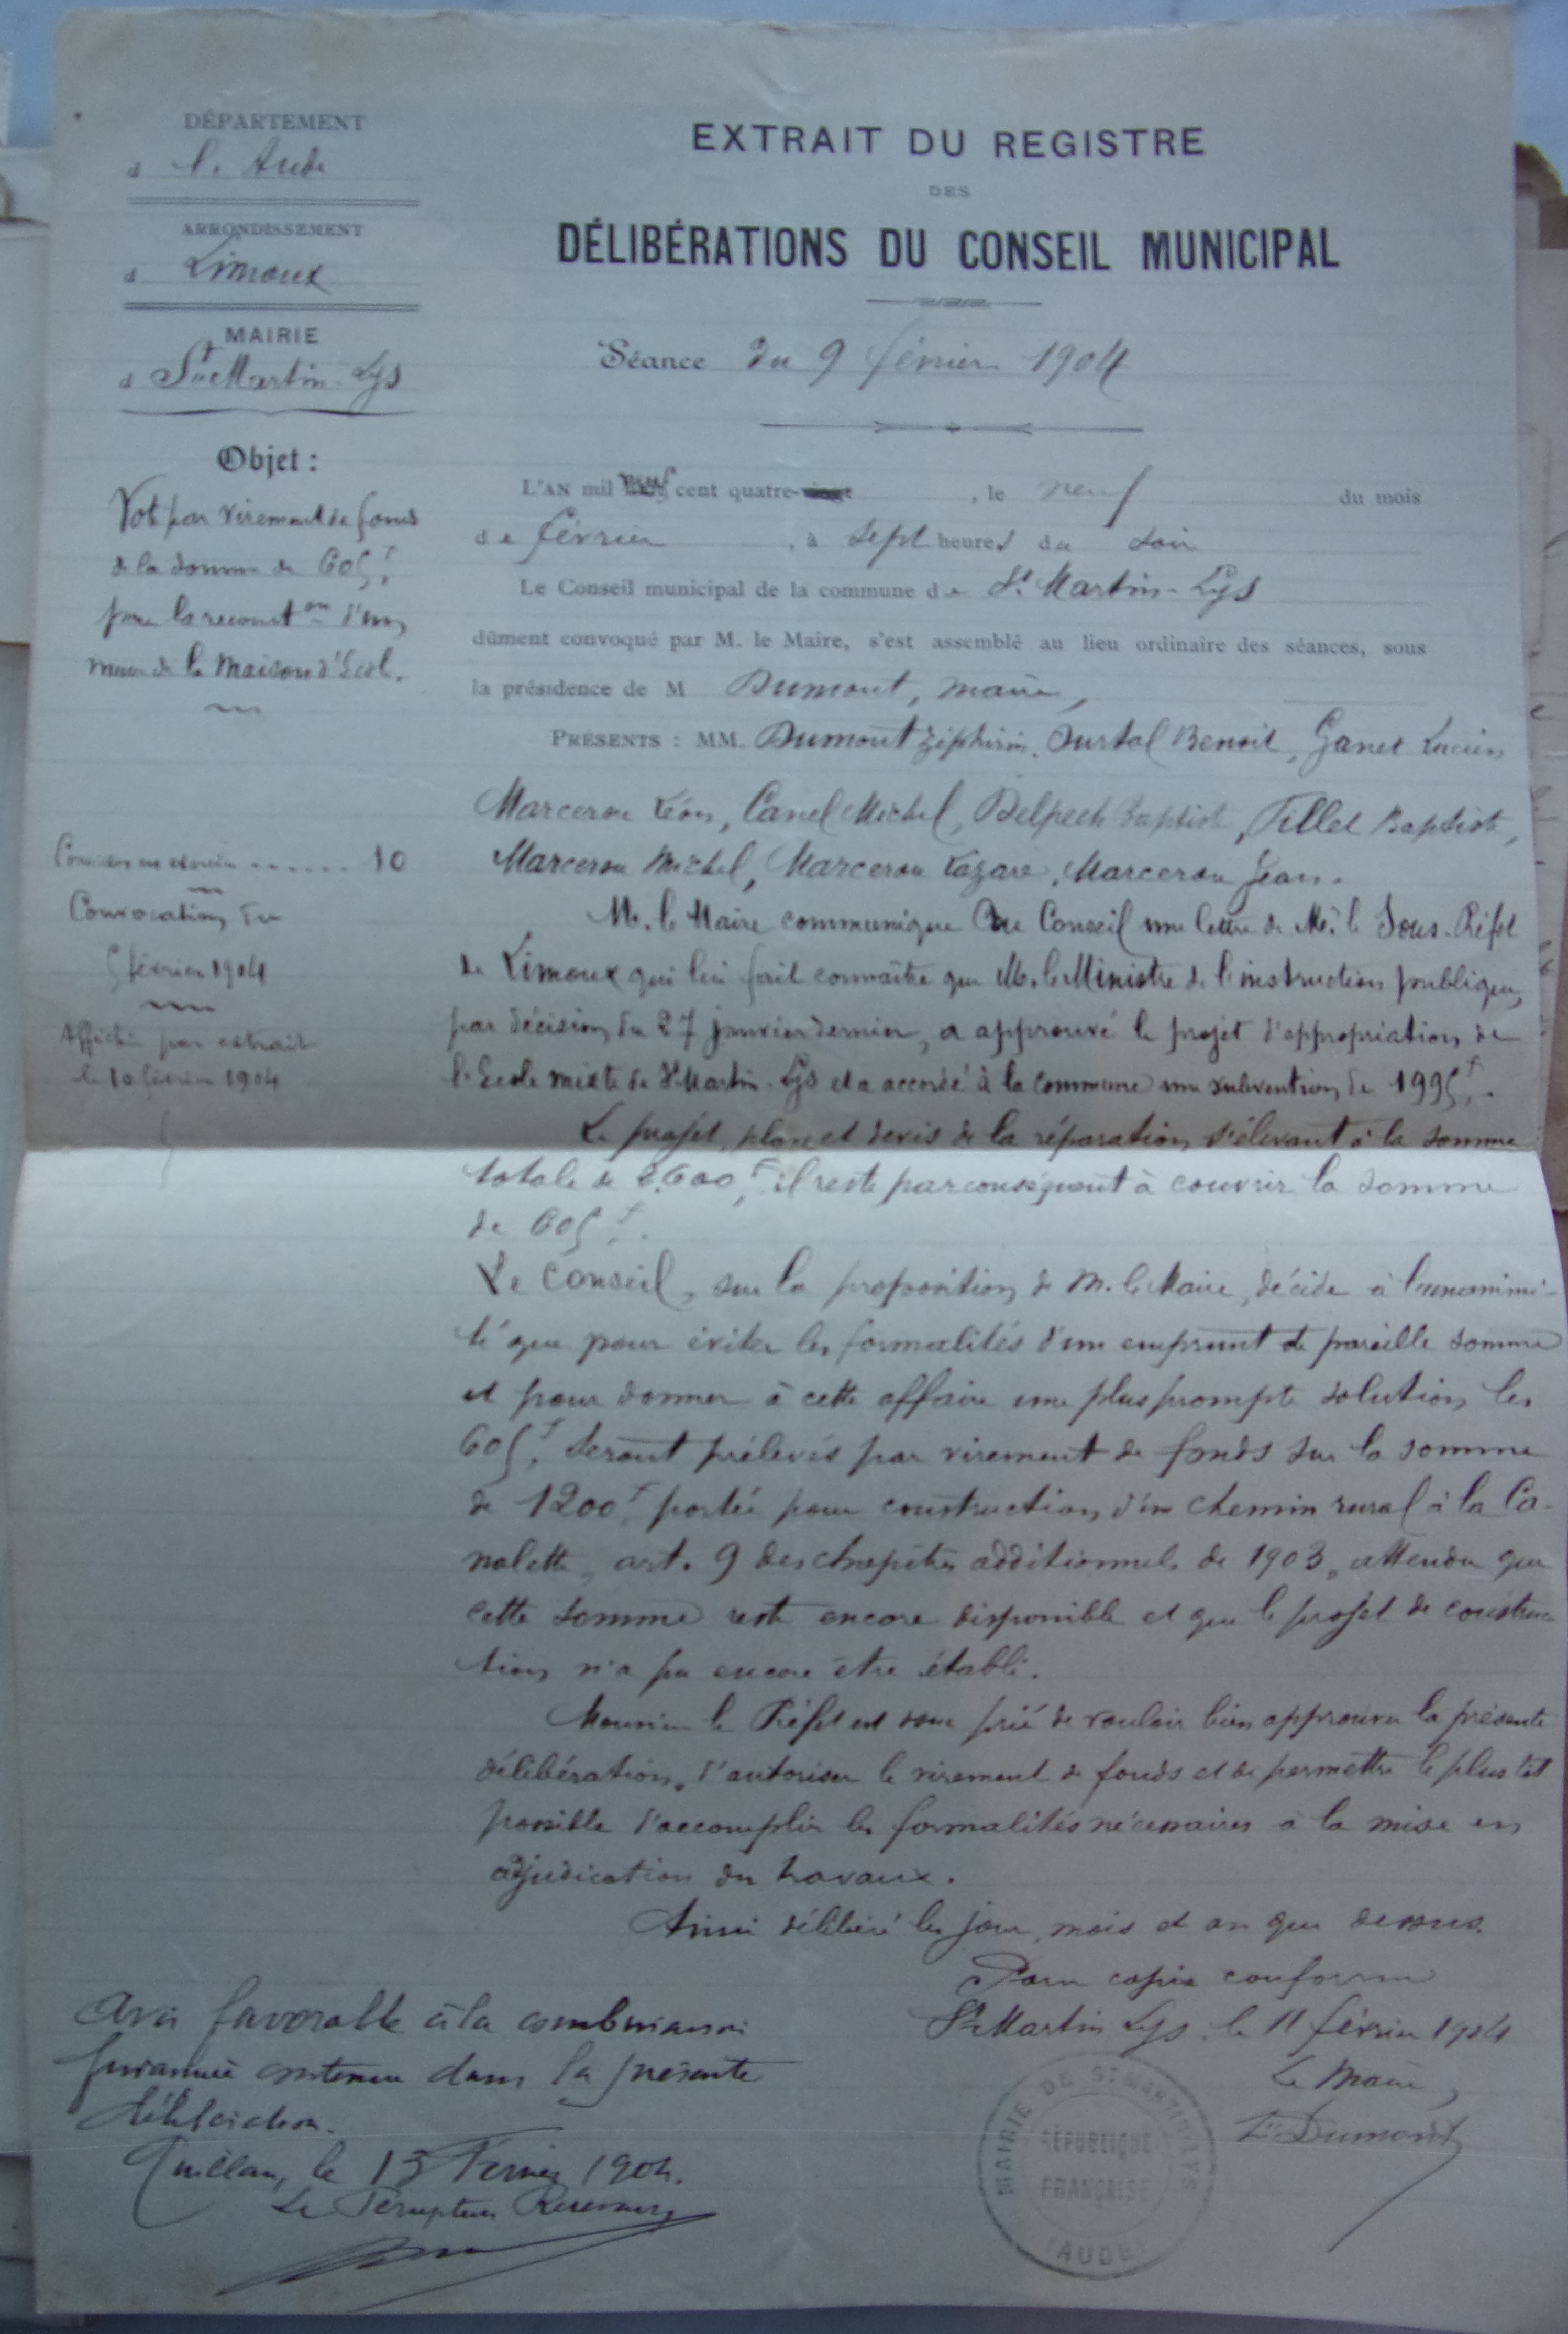 DÉPARTEMENT
d l'Aude
ARRONDISSEMENT
d Limoux
MAIRIE
d St Martin-Lys
Objet :
Vote par virement de fonds
de la somme de 605 f.
pour la reconst on d'un
mur de la Maison d'École.
Conseillers en exercice ...... 10
Convocation du
5 février 1904
Affiché par extrait
le 10 février 1904
EXTRAIT DU REGISTRE
DES
DÉLIBÉRATIONS DU CONSEIL MUNICIPAL
Séance du 9 février 1904
L'AN mil neuf cent quatre , le neuf du mois
de février , à sept heures du soir
Le Conseil municipal de la commune de St Martin-Lys
dûment convoqué par M. le Maire, s'est assemblé au lieu ordinaire des séances, sous
la présidence de M Dumont, maire,
PRÉSENTS : MM. Dumont Zéphirin, Ourtal Benoit, Ganet Lucien
Marcerou Léon, Canel Michel, Delpech Baptiste, Tillet Baptiste,
Marcerou Michel, Marcerou Lazare, Marcerou Jean.
M. le Maire communique au Conseil une lettre de M. le Sous-Préfet
de Limoux qui lui fait connaître que M. le Ministre de l'instruction publique,
par décision du 27 janvier dernier, a approuvé le projet d'appropriation de
l'École mixte de St Martin-Lys et a accordé à la commune une subvention de 1995 f.
Le projet, plan et devis de la réparation s'élevant à la somme
totale de 2.600 f, il reste par conséquent à couvrir la somme
de 605 f.
Le Conseil, sur la proposition de M. le Maire, décide à l'unanimi-
té que pour éviter les formalités d'un emprunt de pareille somme
et pour donner à cette affaire une plus prompte solution, les
605 f. seront prélevés par virement de fonds sur la somme
de 1200 f. portée pour construction d'un chemin rural à la Ca-
nalette, art. 9 des chapitres additionnels de 1903, attendu que
cette somme reste encore disponible et que le projet de construc-
tion n'a pu encore être établi.
Monsieur le Préfet est donc prié de vouloir bien approuver la présente
délibération, d'autoriser le virement de fonds et de permettre le plus tôt
possible d'accomplir les formalités nécessaires à la mise en
adjudication des travaux.
Ainsi délibéré les jour, mois et an que dessus.
Pour copie conforme
St Martin Lys le 11 février 1904
Le Maire,
Z. Dumont
MAIRIE DE ST MARTIN-LYS
RÉPUBLIQUE
FRANÇAISE
(AUDE)
Avis favorable à la combinaison
financière contenue dans la présente
délibération.
Quillan, le 13 Février 1904.
Le Percepteur Receveur,